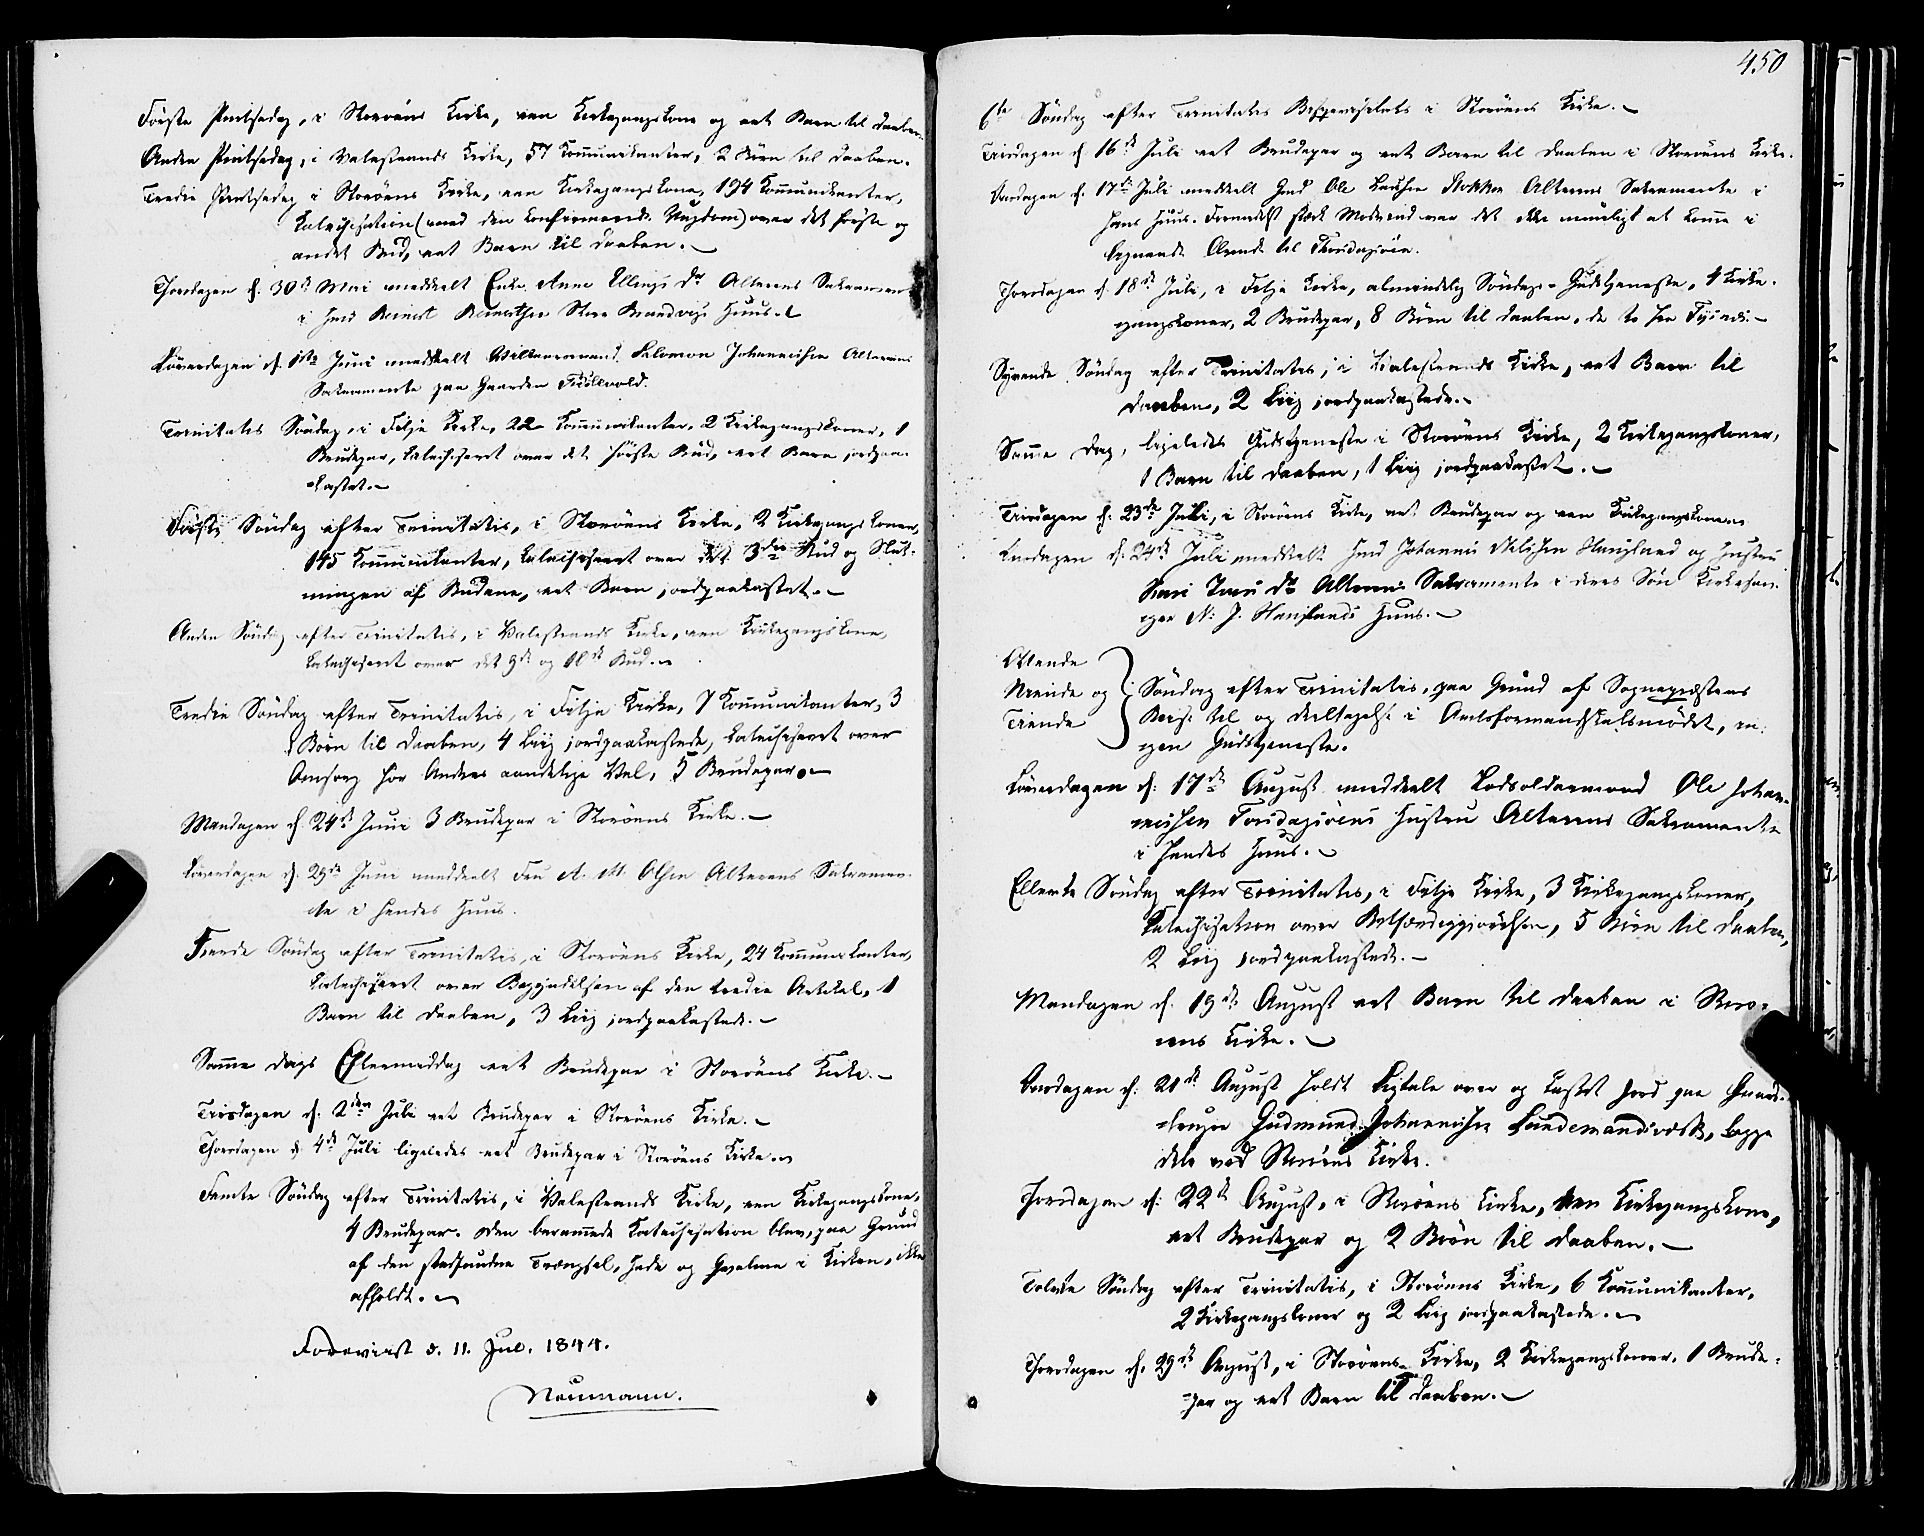 Første Pintsedag, i Storøens Kirke, een Kirkegangskone og eet Barn til Daaben.
Anden Pintsedag, i Valestrands Kirke, 57 Kommunikanter, 2 Børn til Daaben.
Tredie Pintsedag i Storøens Kirke, een Kirkegangskone, 194 Kommunikanter,
Katechisation (med den Konfirmerede Ungdom) over det første og
andet Bud, eet Barn til Daaben. –
Thorsdagen d. 30te Mai meddeelt Enke Anne Ellings Dr Alterens Sakramen
i Huus. –
Løverdagen d. 1ste Juni meddeelt Salomon Johannessen Alterens
Sakramente paa Gaarden
Trinitatis Søndag, i Fitje Kirke, 22 Kommunikanter, 2 Kirkegangskoner, 1
Brudepar, katechiseret over det første Bud, eet Barn jordpaa-
kastet. –
Første Søndag efter Trinitatis, i Storøens Kirke, 2 Kirkegangskoner,
145 Kommunikanter, katechiseret over det 3die Bud og Slut-
ningen af Budene, eet Barn jordpaakastet. –
Anden Søndag efter Trinitatis, i Valestrands Kirke, een Kirkegangskone,
katechiseret over det 9de og 10de Bud. –
Tredie Søndag efter Trinitatis, i Fitje Kirke, 7 Kommunikanter, 3
Børn til Daaben, 4 Liig jordpaakastede, katechiseret over
Omsorg for Andres aandelige Vel, 5 Brudepar. –
Mandagen d. 24de Juni 3 Brudepar i Storøens Kirke. –
Løverdagen d. 29de Juni meddeelt Fru A. M. Olsen Alterens Sakramen-
te i hendes Huus.
Fierde Søndag efter Trinitatis, i Storøens Kirke, 24 Kommunikanter,
katechiseret over Begyndelsen af den tredie Artikel, 1
Barn til Daaben, 3 Liig jordpaakastede. –
Samme Dags Eftermiddag eet Brudepar i Storøens Kirke. –
Tirsdagen d. 2den Juli eet Brudepar i Storøens Kirke. –
Thorsdagen d. 4de Juli ligeledes eet Brudepar i Storøens Kirke. –
Femte Søndag efter Trinitatis, i Valestrands Kirke, een Kirkegangskone,
4 Brudepar. Den berammede Katechisation blev, paa Grund
af den stedfundne Trængsel, Hede og Qvalme i Kirken, ikke
afholdt. –
Forevist d. 11. Jul. 1844.
Neumann.
450
6te Søndag efter Trinitatis i Storøens Kirke. –
Tirsdagen d. 16de Juli eet Brudepar og eet Barn til Daaben i Storøens Kirke.
Onsdagen d. 17de Juli meddeelt Gmd Ole Larssen Stokken Alterens Sakramente i
hans Huus. Formedelst stærk Modvind var det ikke mueligt at komme i
Ærende til
Thorsdagen d. 18de Juli, i Fitje Kirke, almindelig Søndags-Gudstjeneste, 4 Kirke-
gangskoner, 2 Brudepar, 8 Børn til Daaben, de to fra –
Syvende Søndag efter Trinitatis, i Valestrands Kirke, eet Barn til
Daaben, 2 Liig jordpaakastede. –
Samme Dag, ligeledes Gudstjeneste i Storøens Kirke, 2 Kirkegangskoner,
1 Barn til Daaben, 1 Liig jordpaakastet. –
Tirsdagen d. 23de Juli, i Storøens Kirke, eet Brudepar og een Kirkegangskone.
Onsdagen d. 24de Juli meddeelt Gmd Johannes Nelssen Haugland og Hustru
Dr Alterens Sakramente i deres Søn Kirkesan-
ger N. J. Hauglands Huus. –
Ottende
Niende og
Tiende
Søndag efter Trinitatis, paa Grund af Sognepræstens
Reise til og Deeltagelse i Amtsformandskabsmødet, in-
gen Gudstjeneste.
Løverdagen d. 17de August meddeelt Lodsoldermand Ole Johan-
nessen Hustru Alterens Sakramente
i hendes Huus. –
Ellevte Søndag efter Trinitatis, i Fitje Kirke, 3 Kirkegangskoner,
Katechisation over Retfærdiggiørelsen, 5 Børn til Daaben,
2 Liig jordpaakastede. –
Mandagen d. 19de August eet Barn til Daaben i Storø-
ens Kirke. –
Onsdagen d. 21de August holdt Ligtale over og kastet Jord paa Gaard-
bruger Gudmund Johannessen Lundemandsværk, begge
dele ved Storøens Kirke.
Thorsdagen d. 22de August, i Storøens Kirke, een Kirkegangskone,
eet Brudepar og 2 Børn til Daaben. –
Tolvte Søndag efter Trinitatis, i Storøens Kirke, 6 Kommunikanter,
2 Kirkegangskoner og 2 Liig jordpaakastede. –
Thorsdagen d. 29de August, i Storøens Kirke, 2 Kirkegangskoner, 1 Brude-
par og eet Barn til Daaben. –